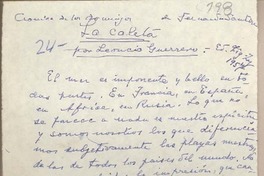 Cronica de los Domingos de Fernando
798
La Caleta
24- por Leoncio Guerrero.-
El mar es imponente y bello en to
das partes. En Francia, en España,
en Africa, en Rusia. Lo que no
se parece a nada es nuestro espíritu
y somos nosotros los que diferencia
mos subjetivamente las playas nuestras
de las de todos los países del mundo.
la impresión, que